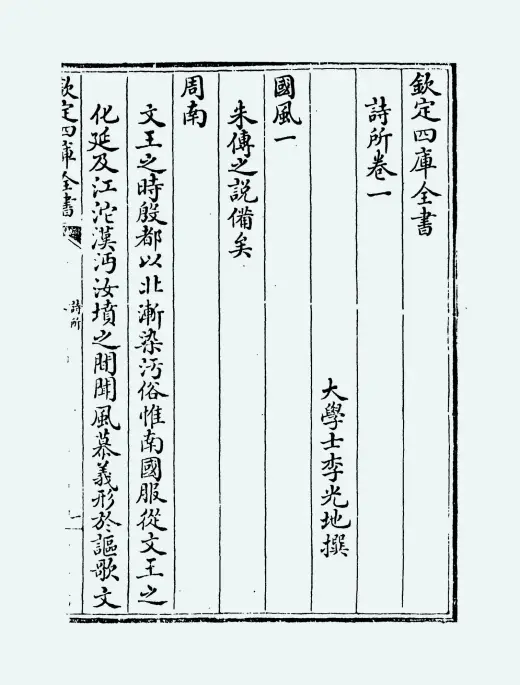 欽定四庫全書
詩所卷一
大學士李光地撰
國風一
朱傳之說備矣
周南
文王之時殷都以北漸染汚俗惟南國服從文王之
化延及江沱漢沔汝墳之間聞風慕義形於謳歌文
欽定四庫全書
詩所
一